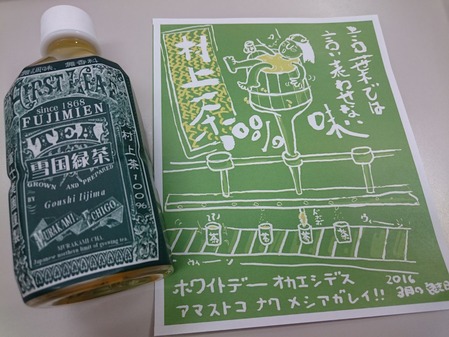 無調味 無香料
FIRST CLASS
since 1868
FUJIMIEN
TEA
雪国緑茶
村上茶100%
GROWN AND PREPARED
BY
Goushi Iijima
MURAKAMI
MURAKAMI CHA
Japanese northern limit of growing tea.
言葉では
言い表わせない
味
村上茶
100%
茶
茶
茶
ホワイトデー オカエシデス
アマストコ ナク メシアガレイ!!
2016
3月の